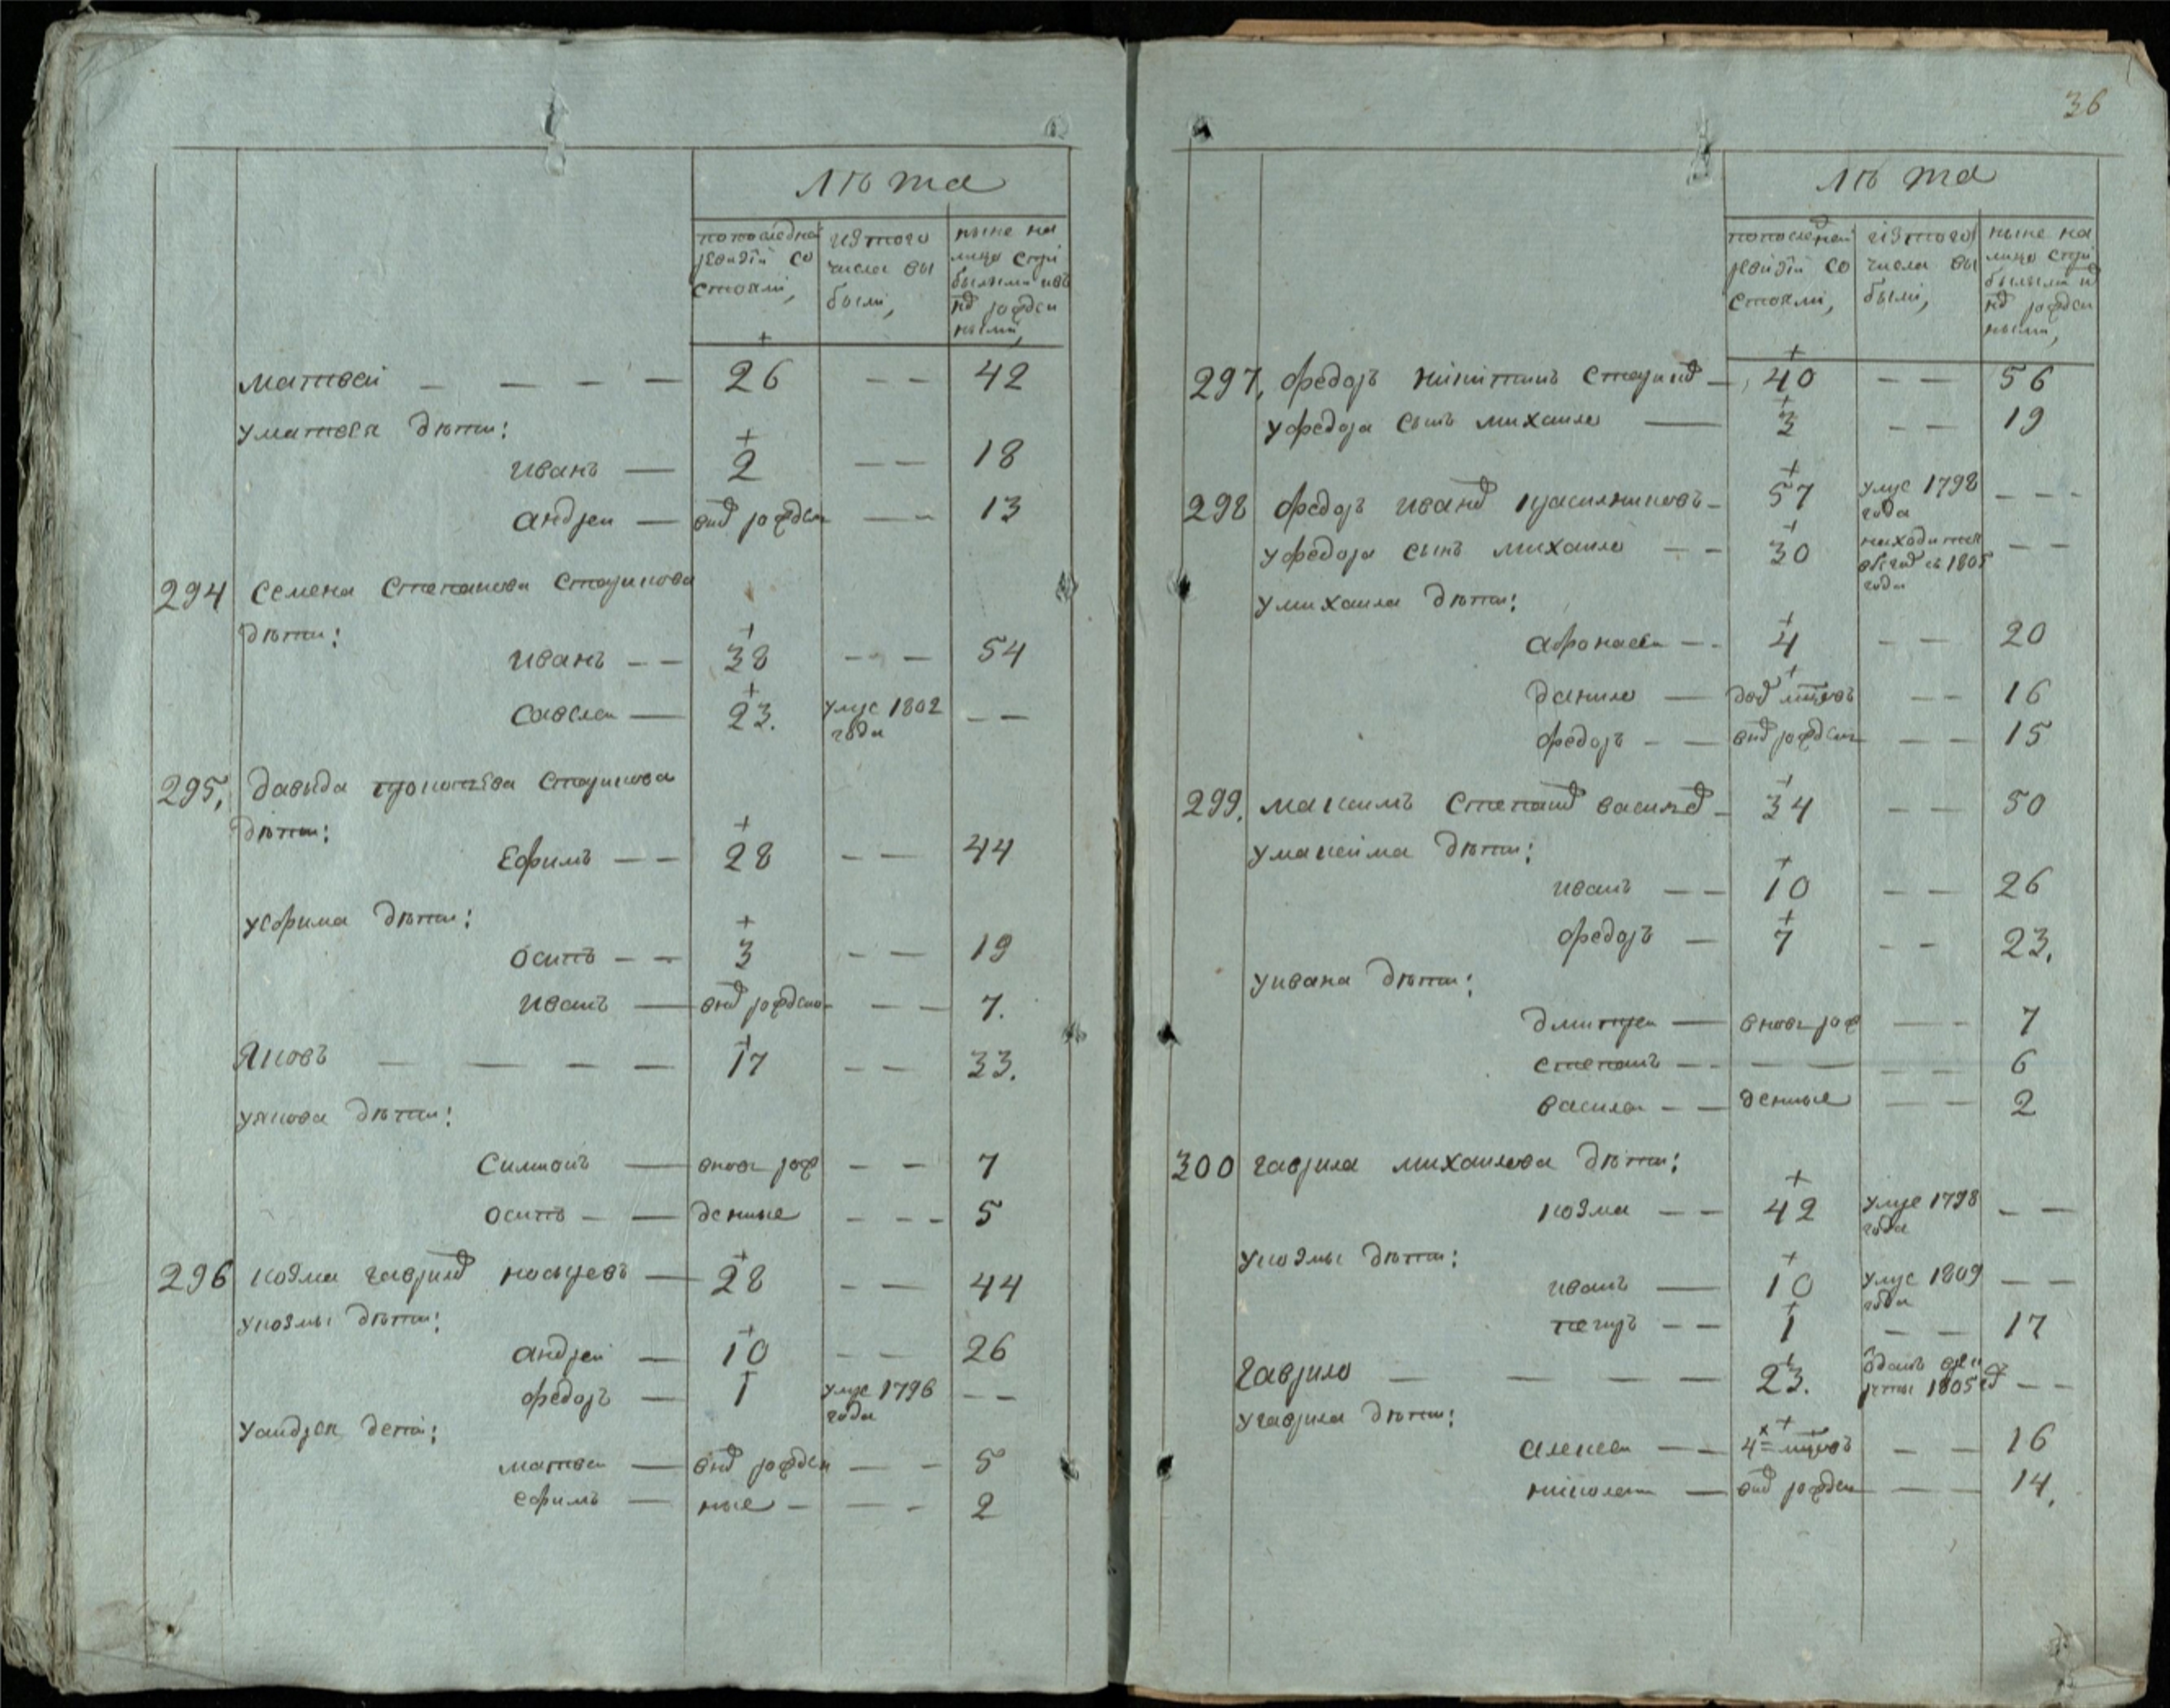 Лѣта
по последней ревизіи состояли,
изъ того числа выбыли,
ныне на лицо с прибылыми и внов рожденными,
Матвей — — — — 26 — — 42
у матвея дѣти:
иванъ — 2 — — 18
андреи — внов рожден — — 13
294 Семена Степанова Старикова
дѣти:
иванъ — — 38 — — 54
Савелеи — 23. умре 1802 года — —
295, давыда прокопьева Старикова
дѣти:
Ефимъ — — 28 — — 44
у ефима дѣти:
осипъ — — 3 — — 19
иванъ — внов рожден — — — 7.
Яковъ — — — — 17 — — 33.
у якова дѣти:
Симионъ — вновь рож — — 7
осипъ — — денные — — — 5
296 козма гаврилов носыревъ — 28 — — 44
у козмы дѣти:
андреи — 10 — — 26
федоръ — 1 умре 1796 года — —
у андрея дети:
матвеи — внов рожден — — 5
ефимъ — ные — — — 2
36
Лѣта
по последней ревизіи состояли,
изъ того числа выбыли,
ныне на лицо с прибылыми и внов рожденными,
297, федоръ никитинъ Стариков — 40 — — 56
у федора сынъ михаило — 3 — — 19
298 федоръ иванов красилниковъ — 57 умре 1798 года — — —
у федора сынъ михаило — — 30 находится в бегах съ 1805 года — —
у михаила дѣти:
афонасеи — — 4 — — 20
данило — пол — — 16
федоръ — — внов рожден — — 15
299. максимъ Степанов василев — 34 — — 50
у максима дѣти:
иванъ — — 10 — — 26
федоръ — 7 — — 23.
у ивана дѣти:
дмитреи — вновь рож — — 7
степанъ — — — — — — 6
василеи — — денные — — 2
300 гаврила михаилова дѣти:
козма — — 42 умре 1798 года — —
у козмы дѣти:
иванъ — 10 умре 1809 года — —
петръ — — 1 — — 17
Гаврило — — — — 23. отданъ в рекруты 1805 год — —
у гаврила дѣти:
алексеи — — 4х — — 16
николаи — внов рожден — — 14.